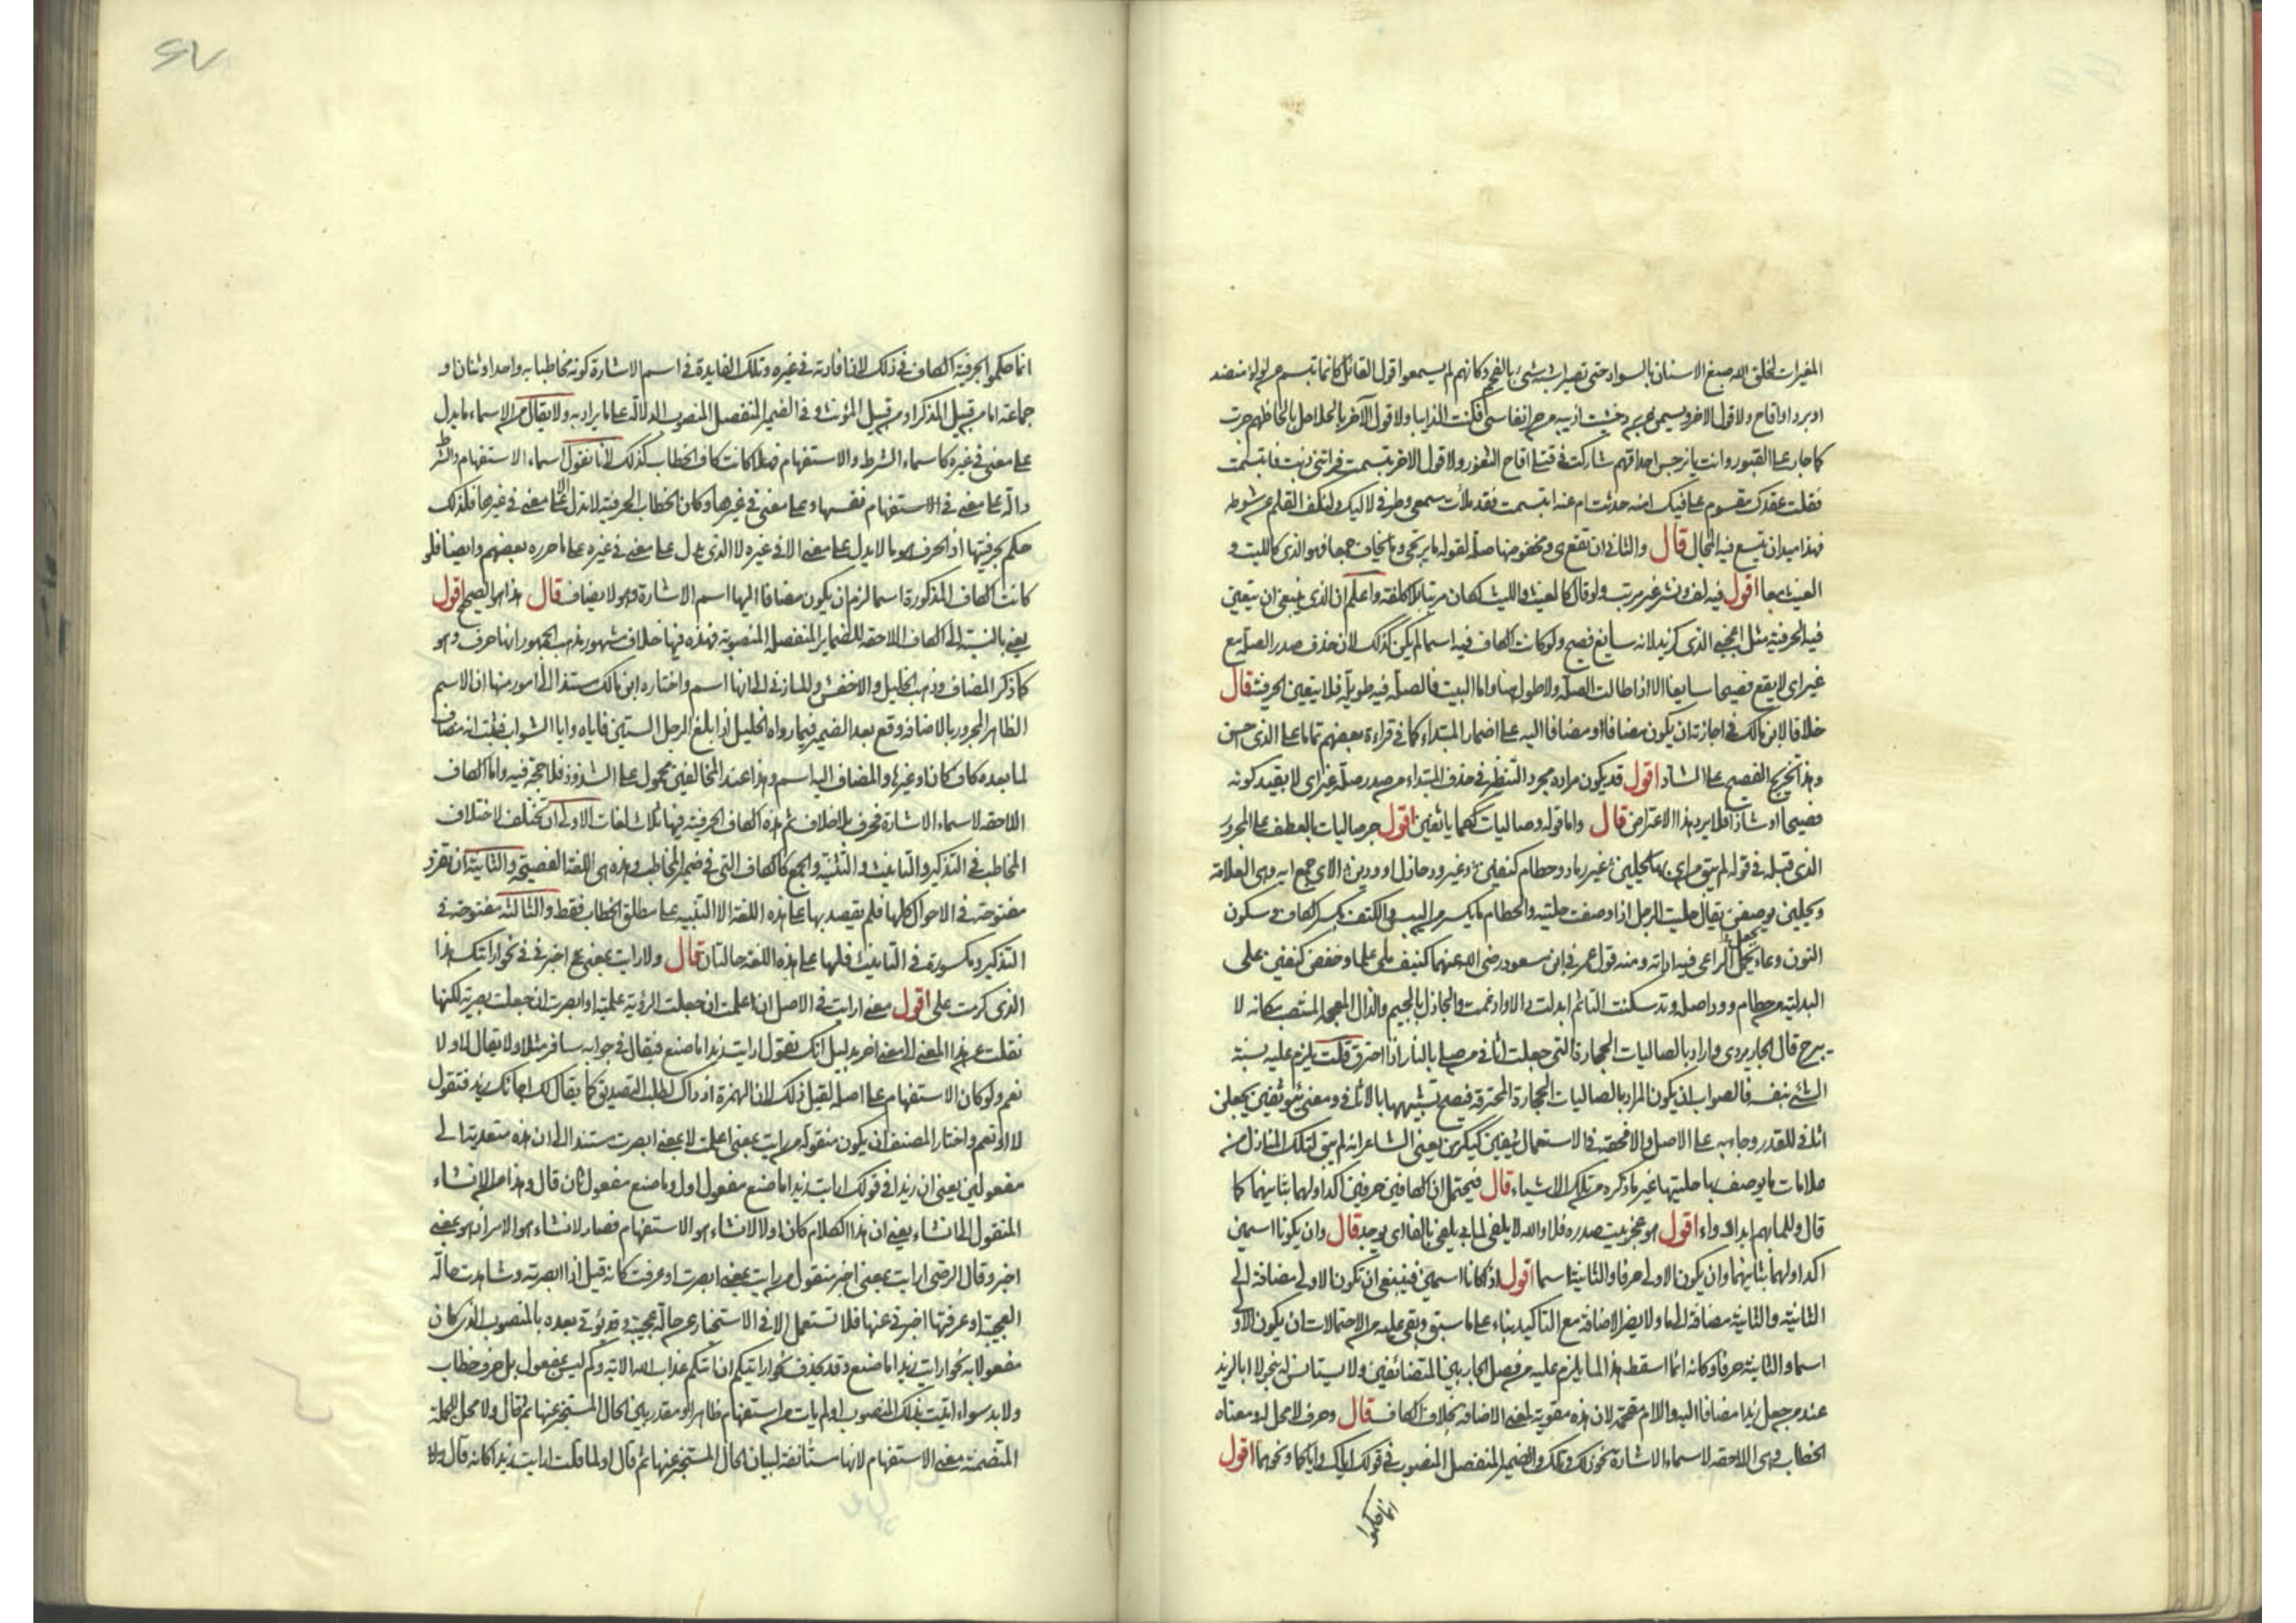 المغيرات لخلق الله صبغ الاسنان بالسواد حتى تصير اشبه شئ بالفحم وكانهم لم يسمعوا قول القائل كانما تبسم عن لؤلؤ منضد
او برد او اقاح ولا قول الاخر
كما جار على القبور وانت يا نرجس احداقهم شاركت في قتلى اقاح الثغور ولا قول الاخر تبسمت
فقلت عقدك مقسوم على فيك امنه حدثت ام عنه ابتسمت فقد ملأت سمعي وطرفي لآليك ولنكف القلم عن شوطه
فهذا ميدان يتسع فيه المجال قال والثاني ان يقع في مخفوضها صلة لقوله ما يرتجى وما يخاف جمعا فهو الذي كالليث و
الغيث معا اقول فيه لف ونشر غير مرتب ولو قال كالغيث والليث لكان مرتبا بلا كلفة واعلم ان الذي ينبغي ان يتعين
فيه الحرفية مثل يعجبني الذي كزيد لانه سايغ فصيح ولو كانت الكاف فيه اسما لم يكن كذلك لان حذف صدر الصلة مع
غير اى لا يقع فصيحا سايغا الا اذا طالت الصلة ولا طول هنا واما البيت فالصلة فيه طويلة فلا يتعين الحرفية قال
خلافا لابن مالك في اجازته ان يكون مضافا ومضافا اليه على اضمار المبتداء كما في قراءة بعضهم تماما على الذي احسن
وهذا تخريج الفصيح على الشاذ اقول قد يكون مراده مجرد التنظير في حذف المبتداء من صدر صلة غير اى لا بقيد كونه
فصيحا او شاذا فلا يرد هذا الاعتراض قال واما قوله وصاليات ككما يؤثفين اقول جر صاليات بالعطف على المجرور
الذي قبله في قوله لم يبق من اى بها يحلين غير رماد وحطام كنفين وغير ود جاذل او ودين الاي جمع اية وهى العلامة
ويحلين يوصفن يقال حليت الرجل اذا وصفت حليته والحطام ما يكسر من اليبس والكنف بكسر الكاف وسكون
النون وعاء يجعل الراعى فيه اداته ومنه قول عمر في ابن مسعود رضى الله عنهما كنيف ملئ علما وخفض كنفين على
البدلية من حطام وود اصله وتد سكنت التاء ثم ابدلت دالا وادغمت والجاذل بالجيم والذال المعجمة المنتصب مكانه لا
يبرح قال الجاربردى واراد بالصاليات الحجارة التى جعلت اثافى من صلى بالنار اذا احترق قلت يلزم عليه تشبيه
الشئ بنفسه فالصواب ان يكون المراد بالصاليات الحجارة المحترقة فيصح تشبيهها بالاثافى ومعنى يؤثفين يجعلن
اثافى للقدر وجاء به على الاصل والافصح في الاستعمال يثفين كيكرمن يعنى الشاعر انه لم يبق لتلك المنازل من
علامات ما يوصف بها حليتها غير ما ذكره من تلك الاشياء قال فيحتمل ان الكافين حرفين اكد اولهما بثانيهما كما
قال وللما بهم ابدا دواء اقول هو عجز بيت صدره فلا والله لا يلفى لما بى يلفى بالفاء اى يوجد قال وان يكونا اسمين
اكد اولهما بثانيهما وان يكون الاولى حرفا والثانية اسما اقول اذا كانا اسمين فينبغى ان تكون الاولى مضافة الى
الثانية والثانية مضافة الى ما ولا يضر الاضافة مع التاكيد بناء على ما سبق وبقى عليه من الاحتمالات ان يكون الاولى
اسما والثانية حرفا وكانه انما اسقط هذا لما يلزم عليه من فصل الجار بين المتضائفين ولا يستانس له بنحو لا ابا لزيد
عند من جعل زيدا مضافا اليه واللام مقحمة لان هذه مقوية لمعنى الاضافة بخلاف الكاف قال وحرف لا محل له ومعناه
الخطاب وهى اللاحقة لاسماء الاشارة نحو ذلك وتلك والضمير المنفصل المنصوب في قولك اياك واياكما ونحوهما اقول
انما حكموا
٤٧
انما حكموا بحرفية الكاف في ذلك لان افادته في غيره وتلك الفايدة في اسم الاشارة كونه مخاطبا به واحد او اثنان او
جماعة اما من قبيل المذكر او من قبيل المؤنث وفي الضمير المنفصل المنصوب الدلالة على ما يراد به ولا يقال من الاسماء ما يدل
على معنى في غيره كاسماء الشرط والاستفهام فهلا كانت كاف الخطاب كذلك لانا نقول اسماء الاستفهام والشرط
دالة على معنى في الاستفهام نفسها وعلى معنى في غيرها وكان الخطاب الحرفية لا تدل الا على معنى في غيرها فلذلك
حكم بحرفيتها اذ الحرف هو ما لا يدل على معنى الا في غيره لا الذي يدل على معنى في غيره على ما حرره بعضهم وايضا فلو
كانت الكاف المذكورة اسما لزم ان يكون مضافا اليها اسم الاشارة وهو لا يضاف قال هذا هو الصحيح اقول
يعنى بالنسبة الى الكاف اللاحقة للضماير المنفصلة المنصوبة فهذه فيها خلاف مشهور مذهب الجمهور انها حرف وهو
كما ذكر المضاف وذهب الخليل والاخفش والمازنى الى انها اسم واختاره ابن مالك مستندا الى امور منها ان الاسم
الظاهر المجرور بالاضافة وقع بعد الضمير فيما رواه الخليل اذا بلغ الرجل الستين فاياه وايا الشواب فثبت انه مضاف
لما بعده كاف كان او غيرها والمضاف اليه اسم وهذا عند المخالفين محمول على الشذوذ فلا حجة فيه واما الكاف
اللاحقة لاسماء الاشارة فحرف بلا خلاف ثم هذه الكاف الحرفية فيها ثلاث لغات الاولى ان تختلف لاختلاف
المخاطب في التذكير والتانيث والتثنية والجمع كالكاف التى في ضمير المخاطب وهذه هى اللغة الفصيحة والثانية ان تفرد
مفتوحة في الاحوال كلها فلم يقصد بها على هذه اللغة الا التنبيه على مطلق الخطاب فقط والثالثة مفتوحة في
التذكير ومكسورة في التانيث فلها على هذه اللغة حالتان قال ولا رايت بمعنى اخبرنى في نحو ارايتك هذا
الذي كرمت على اقول معنى ارايت في الاصل ان اعلمت ان جعلت الرؤية علمية او ابصرت ان جعلت بصرية لكنها
نقلت عن هذا المعنى الى معنى اخر بدليل انك تقول ارايت زيدا ما صنع فيقال في جوابه سافر مثلا ولا يقال لا ولا
نعم ولو كان الاستفهام على اصله لقيل ذلك لان الهمزة اذ ذاك لطلب التصديق كما يقال لك اجاءك زيد فتقول
لا او نعم واختار المصنف ان يكون منقولة من رايت بمعنى اعلمت لا بمعنى ابصرت مستندا الى ان هذه متعدية الى
مفعولين يعنى ان زيدا في قولك ارايت زيدا ما صنع مفعول اول وما صنع مفعول ثان قال وهذا من الانشاء
المنقول الى انشاء يعنى ان هذا الكلام كان اولا لانشاء هو الاستفهام فصار لانشاء هو الامر اذ هو بمعنى
اخبر وقال الرضى ارايت بمعنى اخبر منقول من رايت بمعنى ابصرت او عرفت كانه قيل اذا ابصرته وشاهدت حاله
العجيبة او عرفتها اخبرنى عنها فلا تستعمل الا في الاستخبار عن حالة عجيبة وقد يؤتى بعده بالمنصوب الذي كان
مفعولا به نحو ارايت زيدا ما صنع وقد يحذف نحو ارايتكم ان اتيكم عذاب الله الاية وكم ليس بمفعول بل حرف خطاب
ولا بد سواء اتيت بذلك المنصوب او لم يات من استفهام ظاهر او مقدر يبين الحال المستخبر عنها ثم قال ولا محل للجملة
المتضمنة معنى الاستفهام لانها مستأنفة لبيان الحال المستخبر عنها ثم قال اولما قلت ارايت زيدا كانه قال